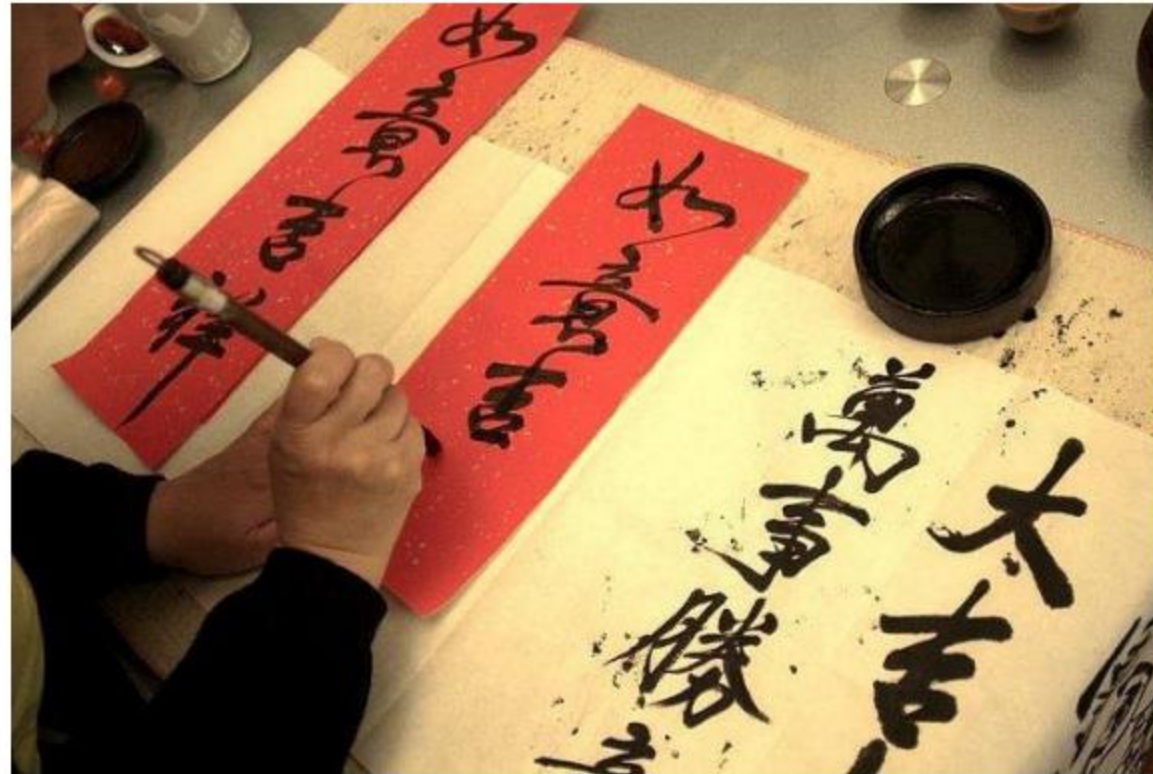 如意吉祥
如意吉
萬事勝
大吉